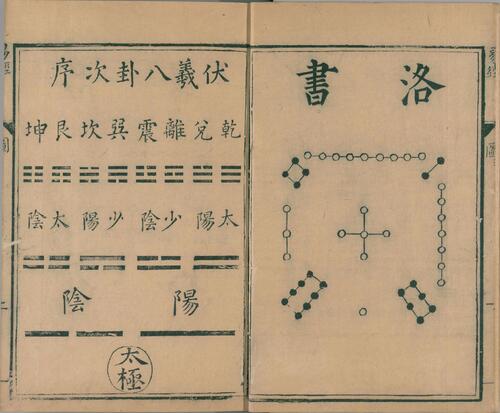 易經
圖
洛書
伏羲八卦次序
乾兌離震巽坎艮坤
太陽少陰少陽太陰
陽陰
太極
易經
圖